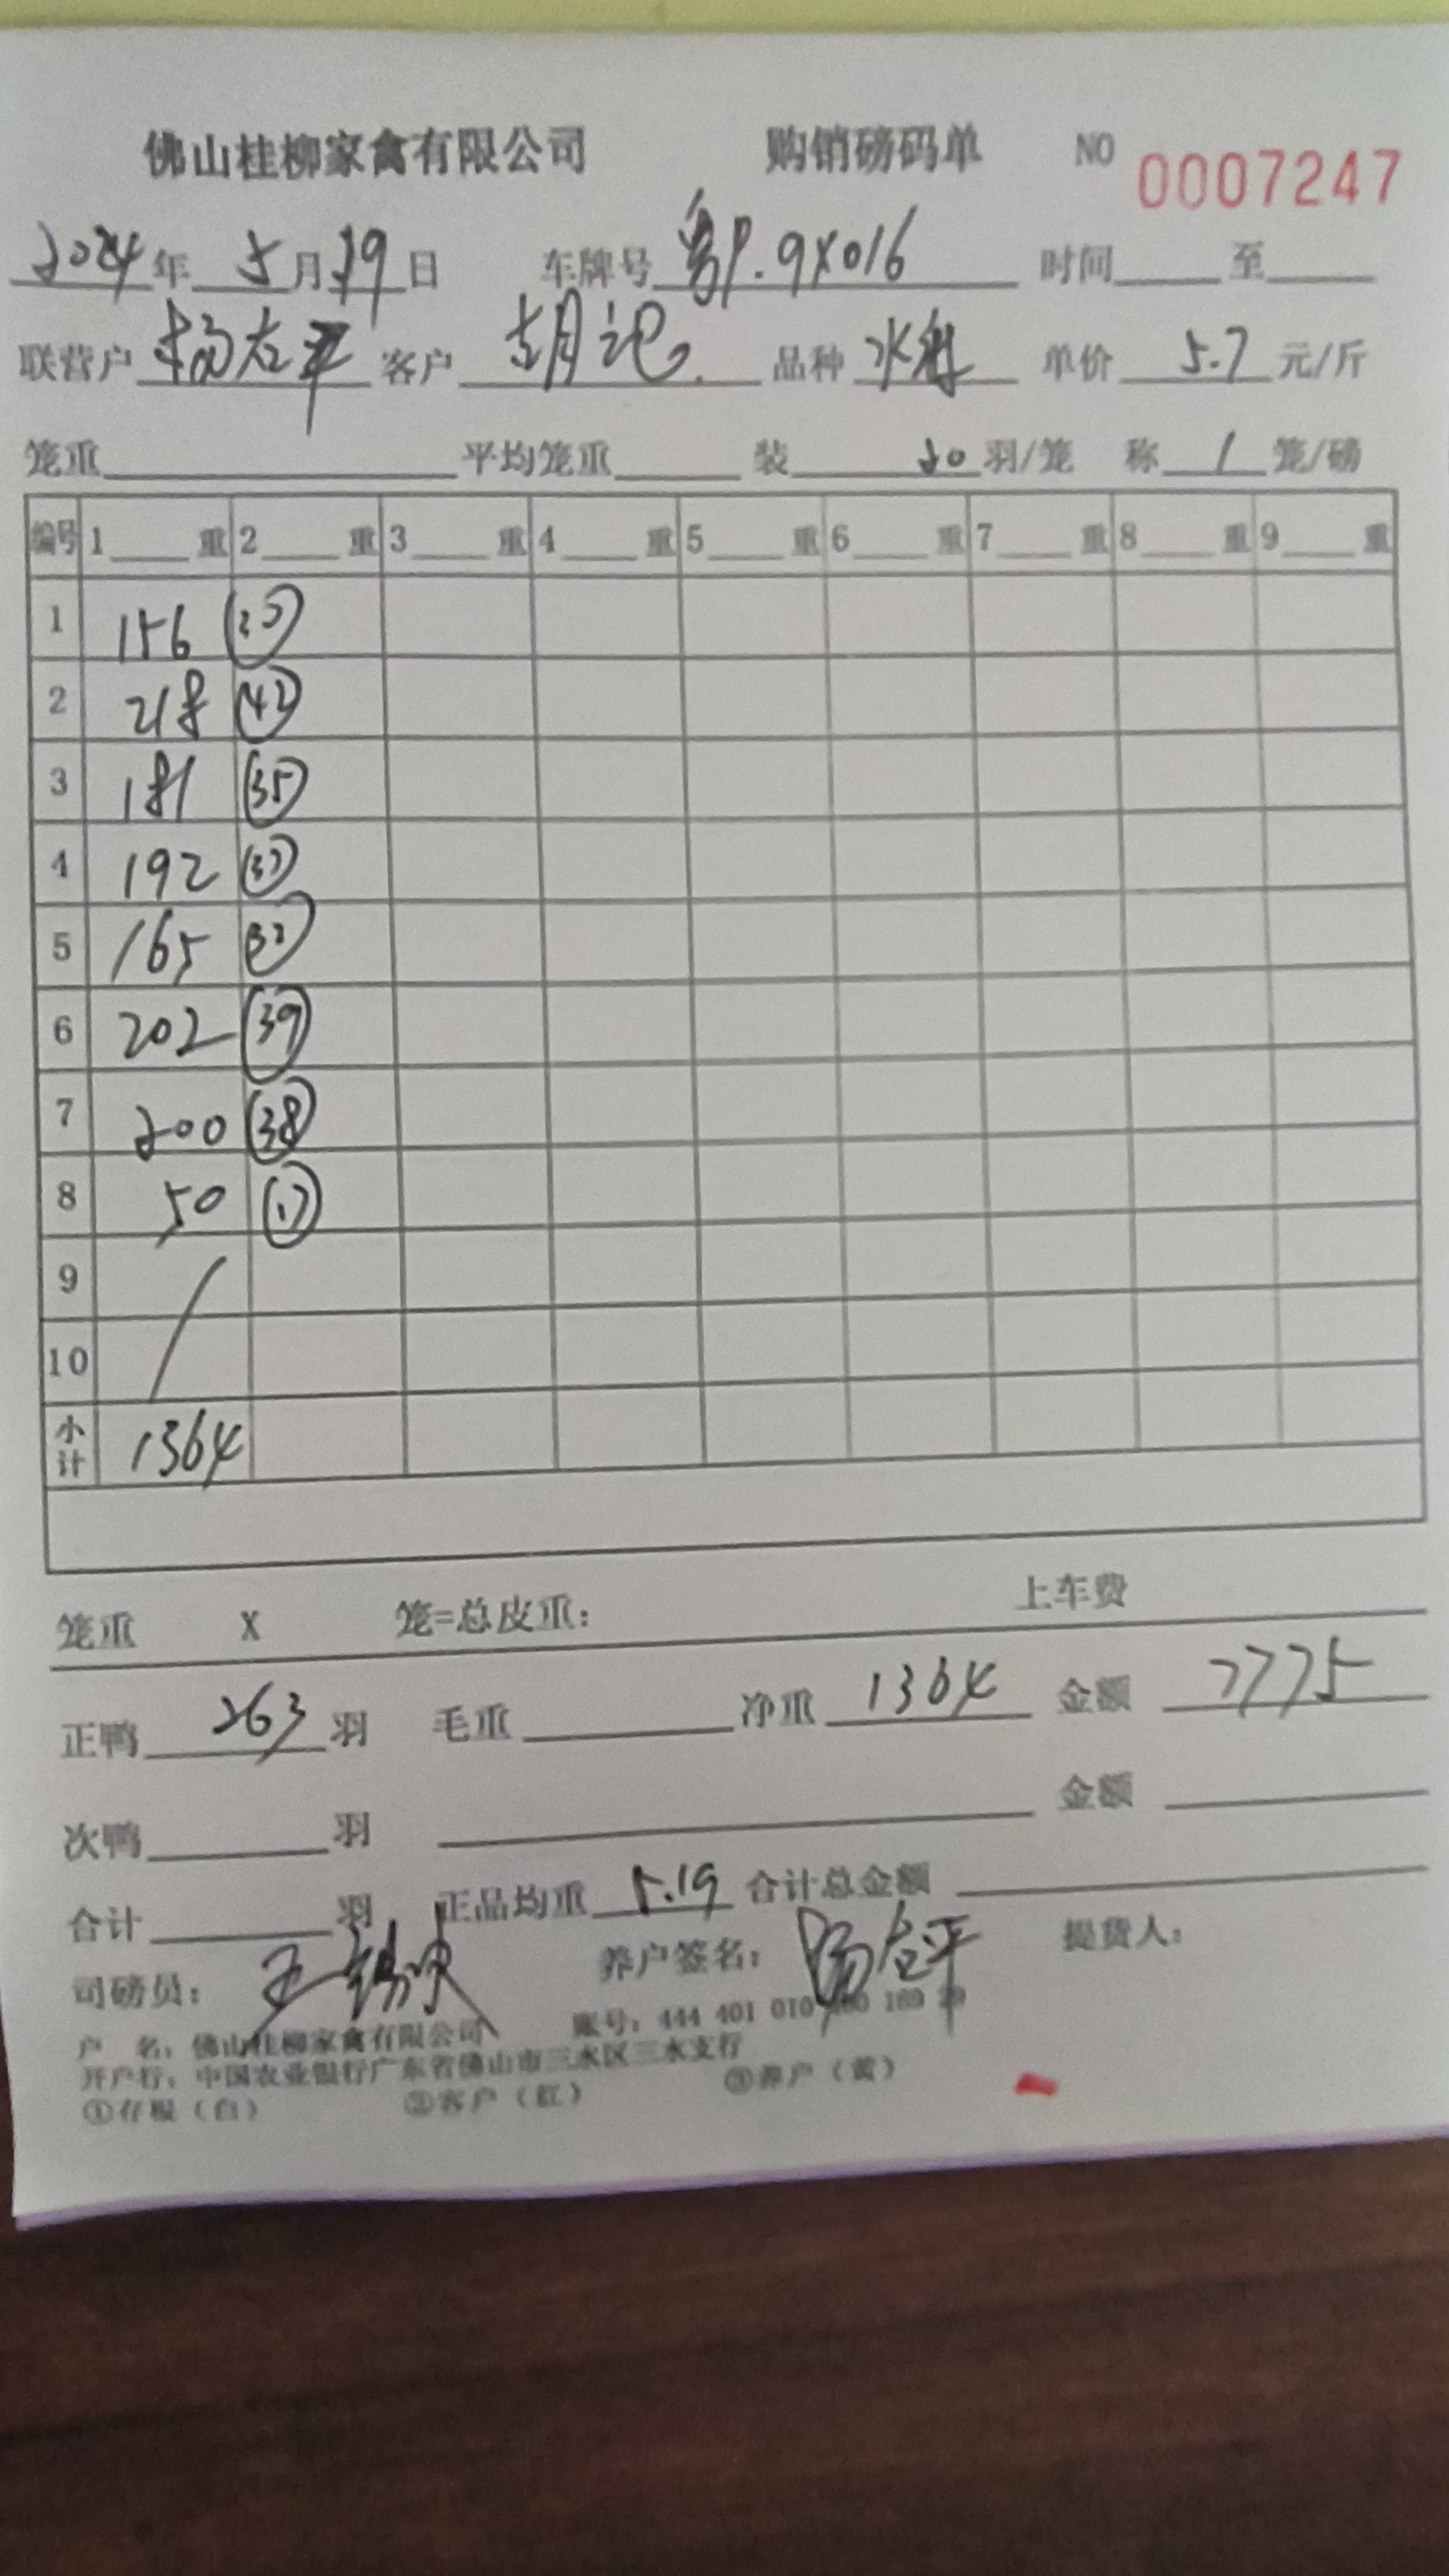 佛山桂柳家禽有限公司 购销磅码单 NO 0007247
2024年 5月29日 车牌号 粤P.9X016 时间 至
联营户 杨太平 客户 胡记 品种 水 单价 5.7 元/斤
笼重 平均笼重 装 20 羽/笼 称 1 笼/磅
编号 1 重 2 重 3 重 4 重 5 重 6 重 7 重 8 重 9 重
1 156
2 218 42
3 181 35
4 192 37
5 165 32
6 202 39
7 200 38
8 50
9
10
小计 1364
笼重 X 笼=总皮重: 上车费
正鸭 263 羽 毛重 净重 1364 金额 7775
次鸭 羽 金额
合计 羽 正品均重 5.19 合计总金额
司磅员: 养户签名: 杨太平 提货人:
户 名: 佛山桂柳家禽有限公司 账号: 444 401 010 169
开户行: 中国农业银行广东省佛山市三水区三水支行
①存根(白) ②客户(红) ③养户(黄)